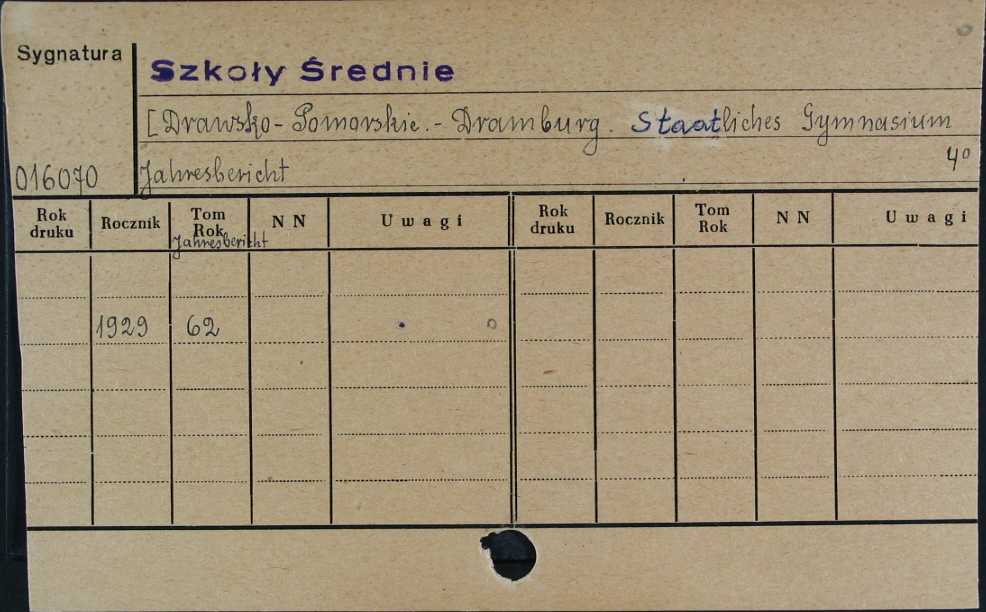 Sygnatura
Szkoły Średnie
[Drawsko-Pomorskie.- Dramburg. Staatliches Gymnasium
4º
016070 Jahresbericht
Rok druku Rocznik Tom Rok N N Uwagi Rok druku Rocznik Tom Rok N N Uwagi
Jahresbericht
1929 62